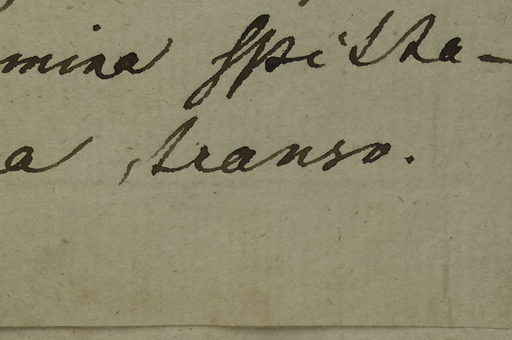 mina Spitta-
a transo.